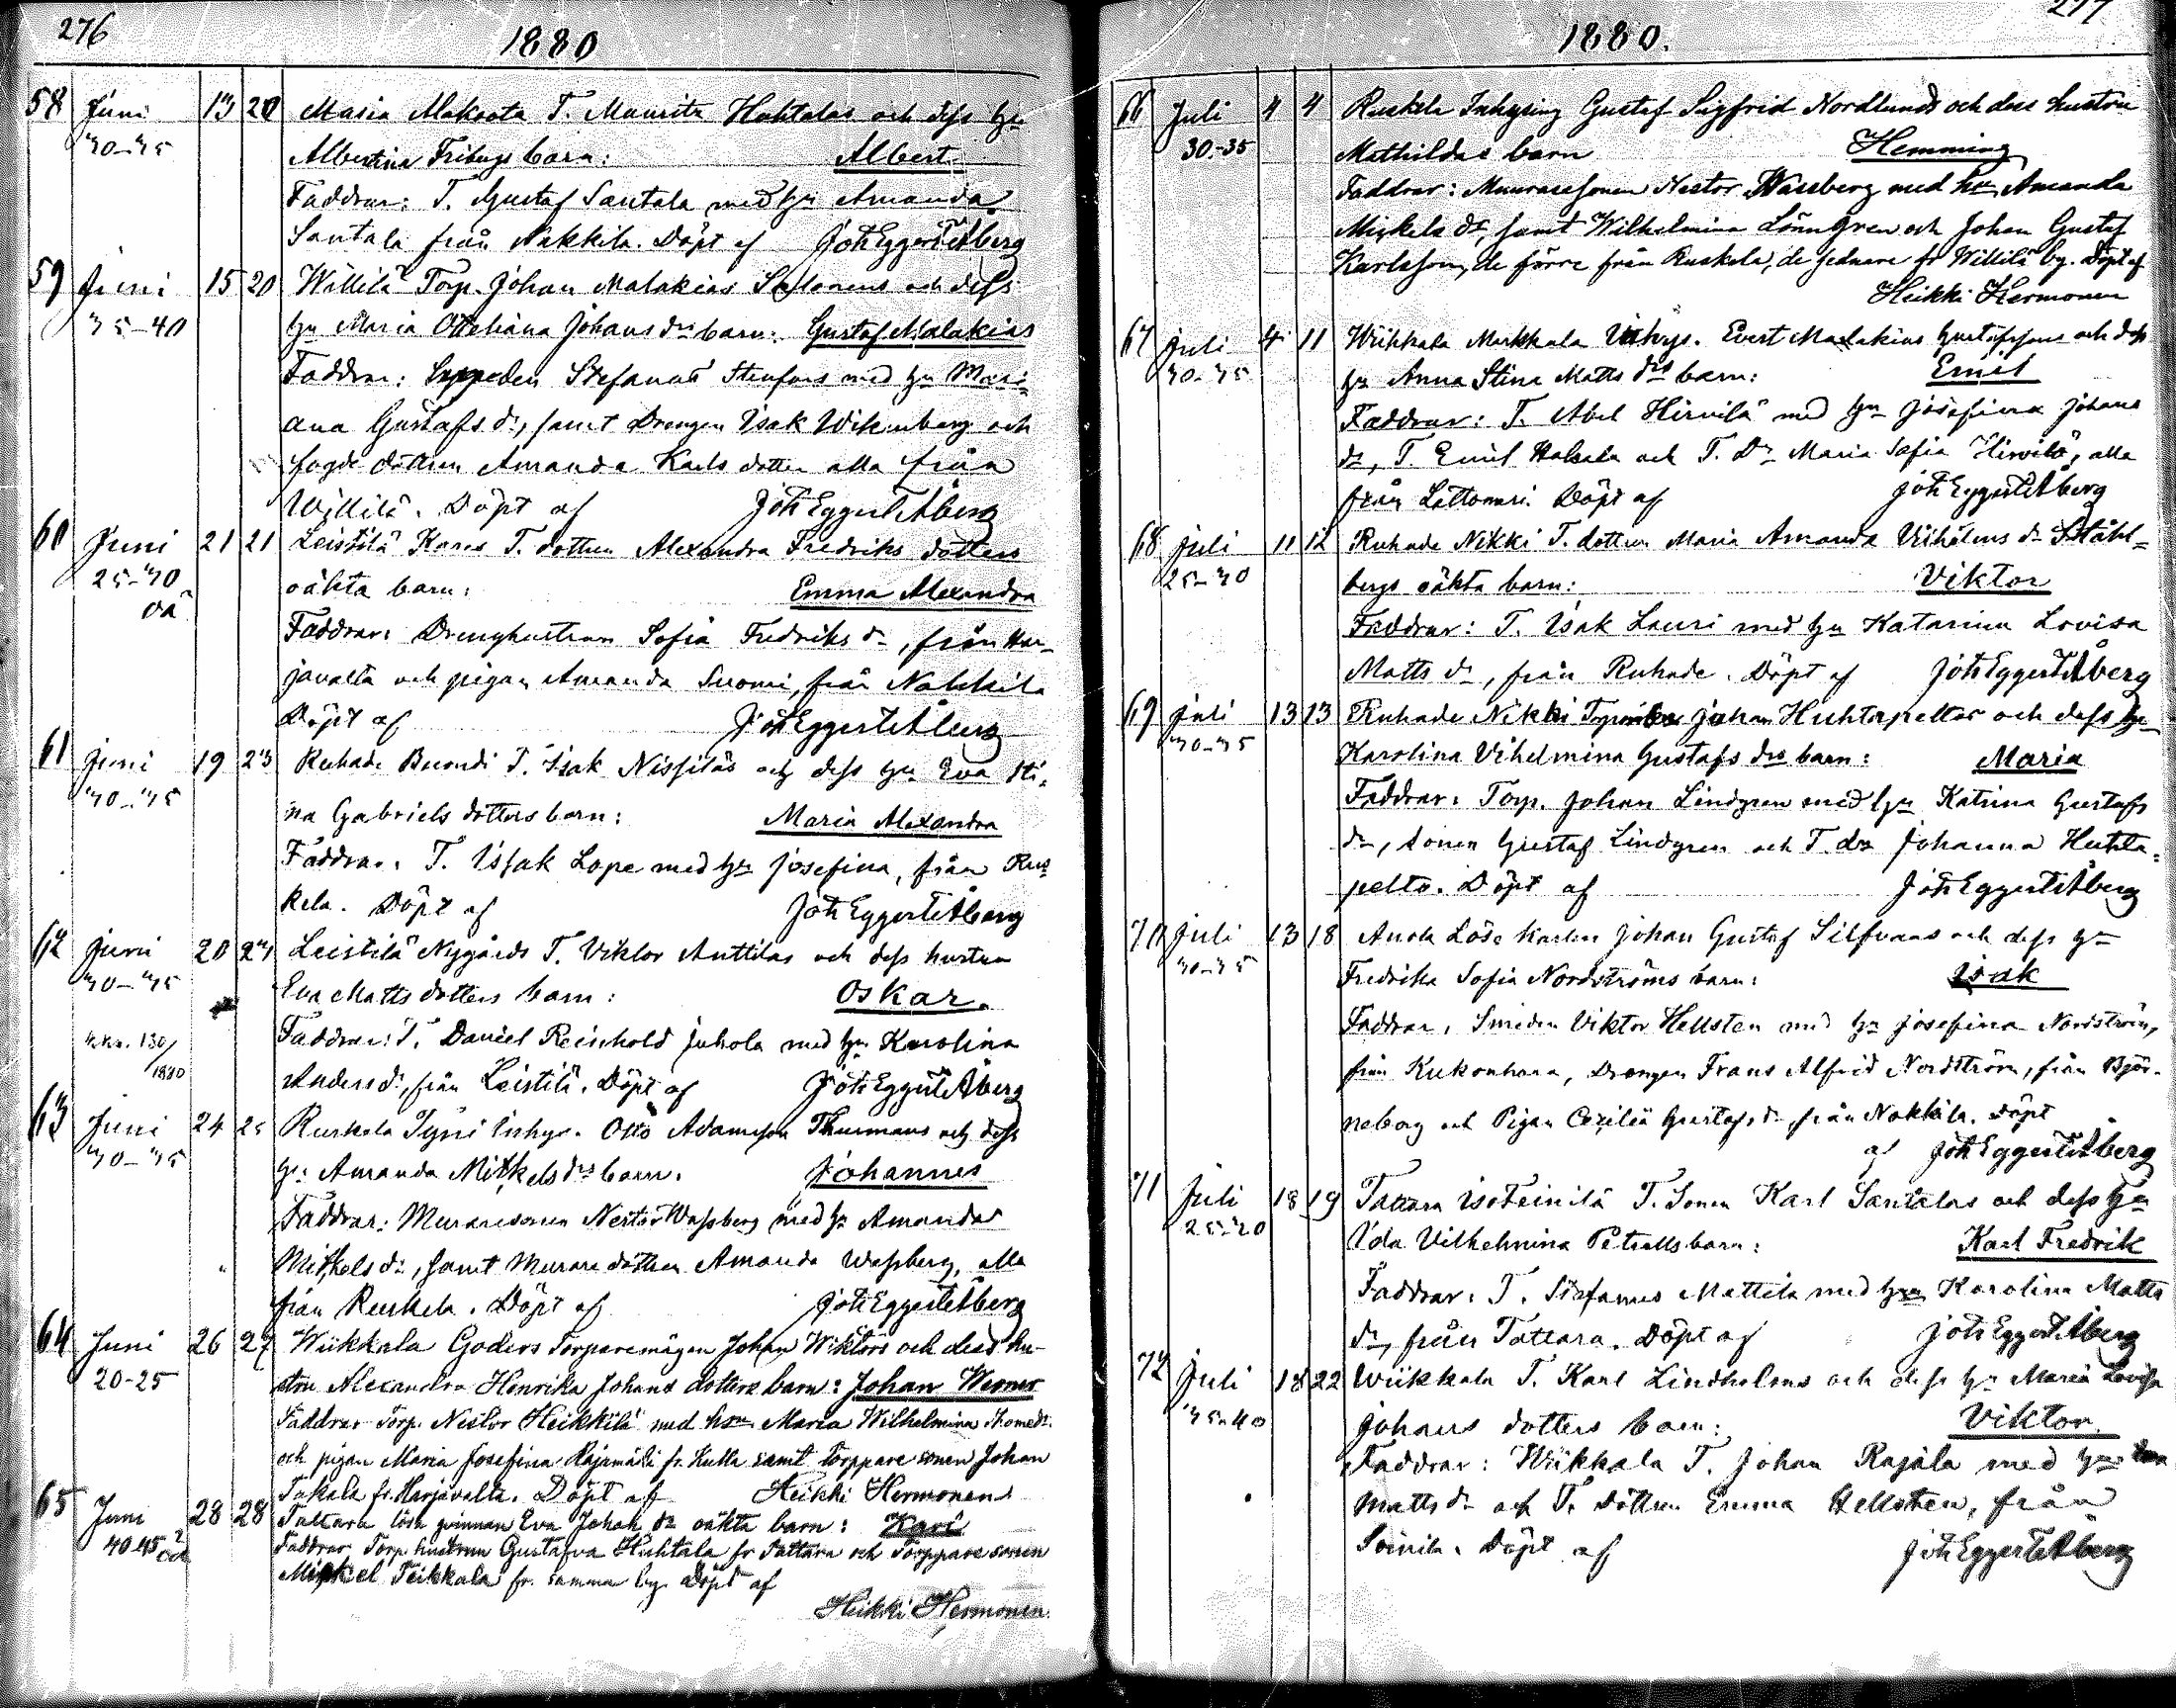 276
1880
58 Juni 13 20 Masia Makoota T. Mauritz Huhtalas och dess hu
30-35 Albertina Fribergs barn: Albert
Faddrar: T. Gustaf Santala med hu Amanda
Santala från Nakkila. Döpt af Joh Eggert Åberg
59 Juni 15 20 Willilä Torp. Johan Malakias Salonens och dess
35-40 hu Maria Otteliana Johans drs barn: Gustaf Malakias
Faddrar: Stefanus Stenfors med hu Mari-
ana Gustafs dr, samt Drengen Isak Wikenberg och
fogde dottren Amanda Karls dotter alla från
Willilä. Döpt af Joh Eggert Åberg
60 Juni 21 21 Leistilä Kares T. dottren Alexandra Fredriks dotters
25-30 oäkta barn: Emma Alexandra
oä
Faddrar: Drenghustrun Sofia Fredriks dr, från Har-
javalta och pigan Amanda Suomi, från Nakkila
Döpt af Joh Eggert Åberg
61 Juni 19 23 Ruhade Buondi T. Isak Nissiläs och dess hu Eva Sti-
30-35 na Gabriels dotters barn: Maria Alexandra
Faddrar: T. Isak Lope med hu Josefina, från Rus-
kela. Döpt af Joh Eggert Åberg
62 Juni 20 23 Leistilä Nygårds T. Viktor Anttilas och dess hustru
30-35 Eva Matts dotters barn: Oskar.
Faddrar: T. Daniel Reinhold Juhola med hu Karolina
130/1880
Anders dr, från Leistilä. Döpt af Joh Eggert Åberg
63 Juni 24 25 Ruskela Tyni Inhys. Otto Adamsson Thurmans och dess
30-35 hu Amanda Mickels drs barn. Johannes
Faddrar: Muraresonen Nestor Wassberg med hu Amanda
Mickels dr, samt Murare dottren Amanda Wassberg, alla
från Ruskela. Döpt af Joh Eggert Åberg
64 Juni 26 27 Wiikkala Goders Torparemågen Johan Wiktors och dess hu-
20-25 stru Alexandra Henrika Johans dotters barn: Johan Werner
Faddrar Torp. Nestor Heikkilä med hsu Maria Wilhelmina Thomedr.
och pigan Maria Josefina Rajamäki fr. Kulla samt torppare sonen Johan
Takala fr. Harjavalta. Döpt af Heikki Hermonen
65 Juni 28 28 Tattara lösa qvinnan Eva Johak. dr oäkta barn: Karl
40-45 oä
Faddrar Torp. hustrun Gustafva Huhtala fr Tattara och Torppare sonen
Mickel Teikkala fr. samma by. Döpt af
Heikki Hermonen.
277
1880.
66 Juli 4 4 Ruskela Inhysing Gustaf Sigfrid Nordlunds och dess hustru
30-35 Mathildas barn Hemming
Faddrar: Muraresonen Nestor Wassberg med hu Amanda
Mickels dr, samt Wilhelmina Lönngren och Johan Gustaf
Karlsson, de förre från Ruskela, de sednare fr Willilä by. Döpt af
Heikki Hermonen
67 Juli 4 11 Wiikkala Markkula Inhys. Evert Malakias Gustafssons och dess
30-35 hu Anna Stina Matts drs barn: Emil
Faddrar: T. Abel Hirvilä med hu Josefina Johans
dr, T. Emil Halsala och T. Dr Maria Sofia Hirvilä, alla
från Lattomeri. Döpt af Joh Eggert Åberg
68 Juli 11 12 Ruhade Nikki T. dottren Maria Amanda Vilhelms dr Ståhl-
25-30 bergs oäkta barn: Viktor
Faddrar: T. Isak Lauri med hu Katarina Lovisa
Matts dr, från Ruhade. Döpt af Joh Eggert Åberg
69 Juli 13 13 Ruhade Nikki Johan Huhtapeltos och dess hu
30-35 Karolina Vilhelmina Gustafs drs barn: Maria
Faddrar: Torp. Johan Lindgren med hu Katrina Gustafs
dr, sonen Gustaf Lindgren och T. dr Johanna Huhta-
pelto. Döpt af Joh Eggert Åberg
70 Juli 13 18 Anola Löse karlen Johan Gustaf Silfvans och dess hu
30-35 Fredrika Sofia Nordströms barn: Isak
Faddrar: Smeden Viktor Hellsten med hu Josefina Nordström,
från Kukonharja, Drengen Frans Alfrid Nordström, från Björ-
neborg och Pigan Cecilia Gustafs dr från Nakkila. Döpt
af Joh Eggert Åberg
71 Juli 18 19 Tattara Isoteinilä T. Sonen Karl Santalas och dess hu
25-30 Ida Vilhelmina Petrells barn: Karl Fredrik
Faddrar: T. Stefanus Mattila med hu Karolina Matts
dr, från Tattara. Döpt af Joh Eggert Åberg
72 Juli 18 22 Wiikkala T. Karl Lindholms och dess hu Maria Lovisa
35-40 Johans dotters barn: Viktor.
Faddrar: Wiikkala T. Johan Rajala med hu
Matts dr och T. dottren Emma Hellsten, från
Soinila. Döpt af Joh Eggert Åberg